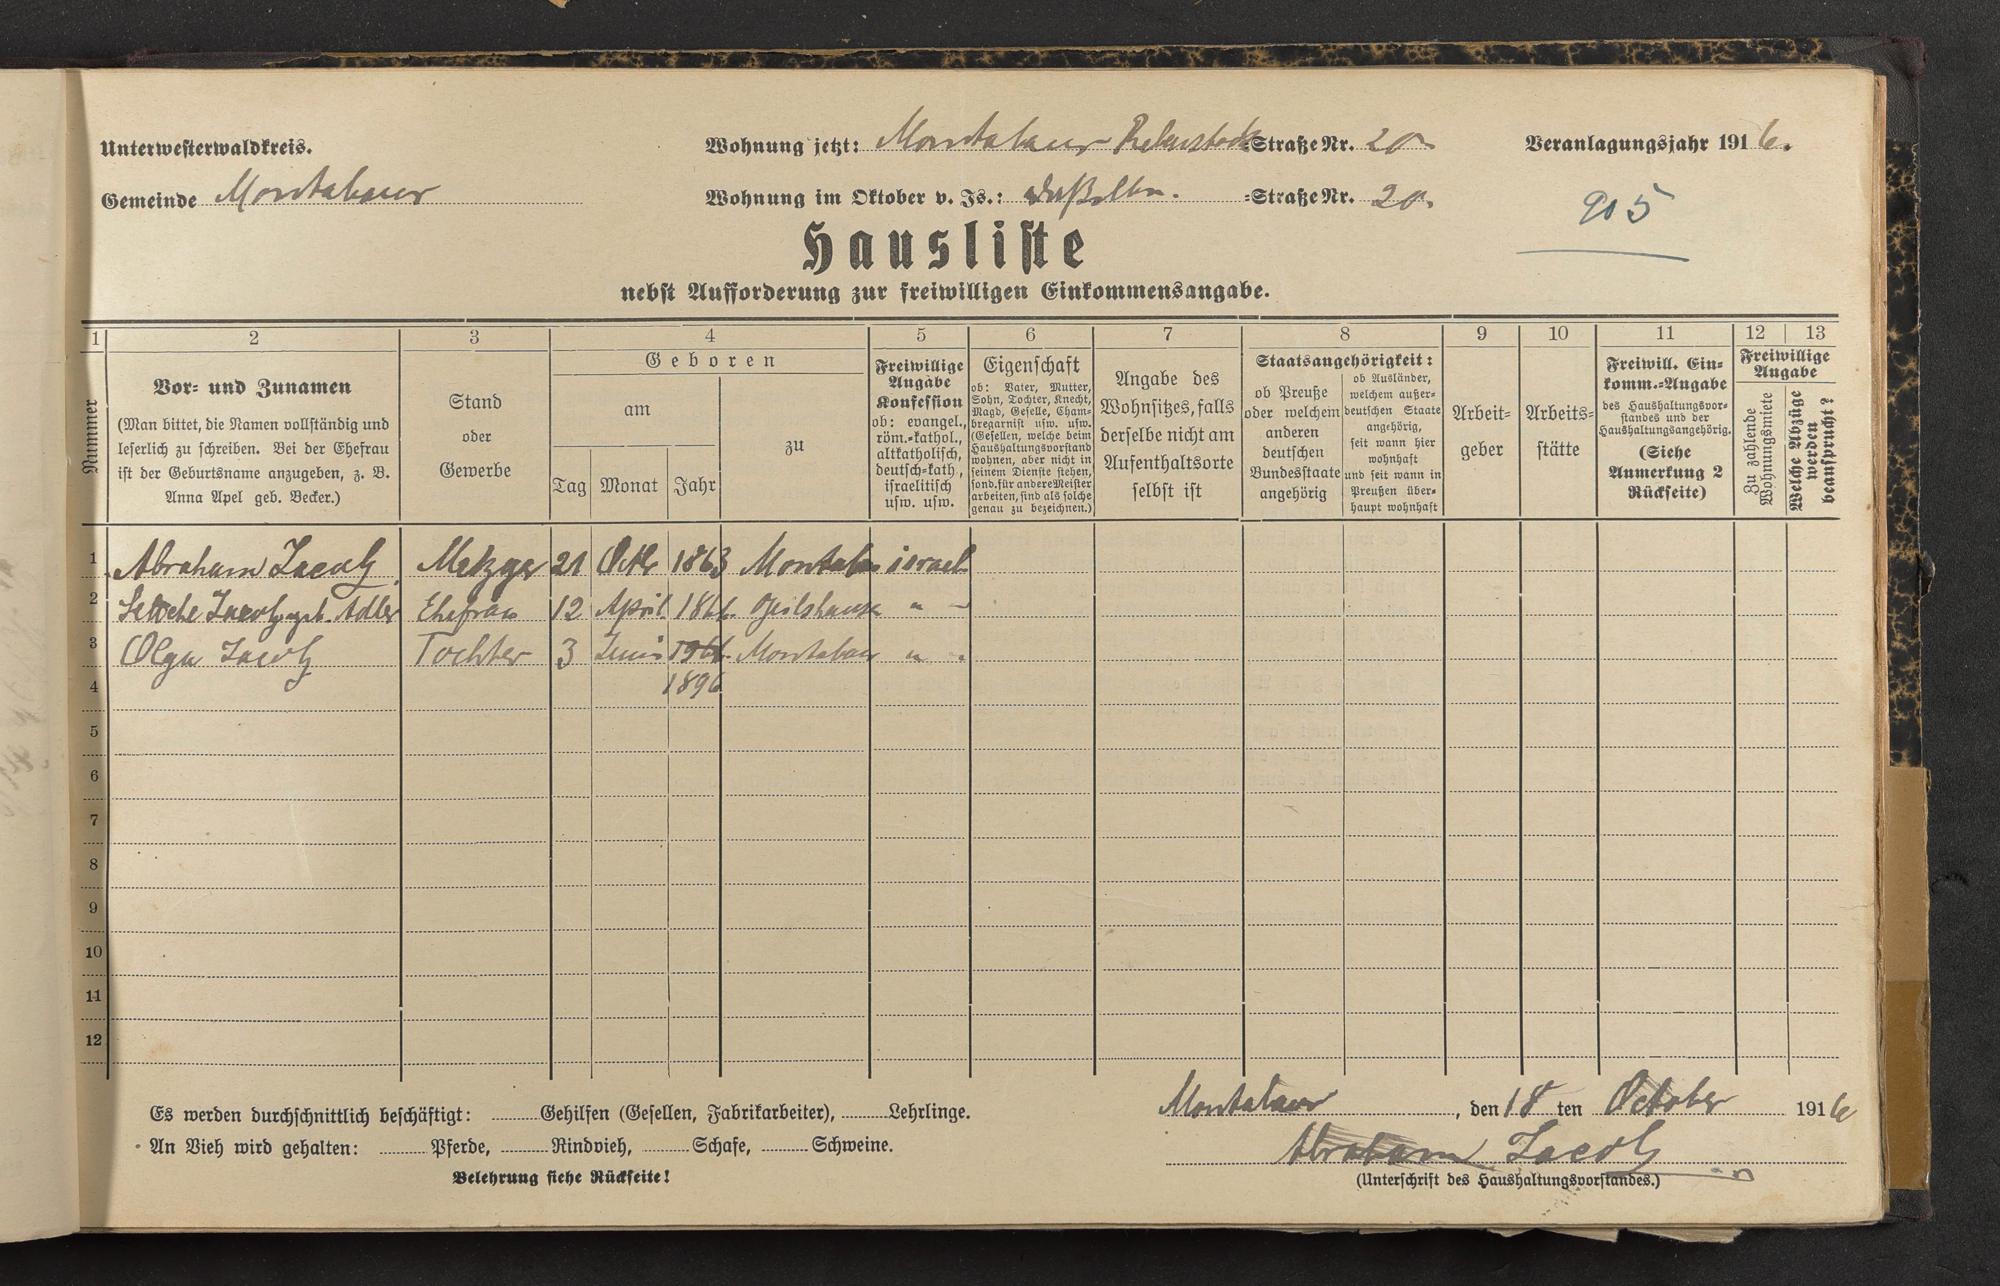 Unterwesterwaldkreis.
Wohnung jetzt: Montabaur Rebenstock=Straße Nr. 20
Veranlagungsjahr 1916.
Gemeinde Montabaur
Wohnung im Oktober v. Js.: =Straße Nr. 20.
905
Hausliste
nebst Aufforderung zur freiwilligen Einkommensangabe.
1 2 3 4 5 6 7 8 9 10 11 12 13
Nummer
Vor= und Zunamen
(Man bittet, die Namen vollständig und
leserlich zu schreiben. Bei der Ehefrau
ist der Geburtsname anzugeben, z. B.
Anna Apel geb. Becker.)
Stand
oder
Gewerbe
Geboren
am
Tag Monat Jahr
zu
Freiwillige
Angabe
Konfession
ob: evangel.,
röm.=kathol.,
altkatholisch,
deutsch=kath.,
israelitisch
usw. usw.
Eigenschaft
ob: Vater, Mutter,
Sohn, Tochter, Knecht,
Magd, Geselle, Cham=
bregarnist usw. usw.
(Gesellen, welche beim
Haushaltungsvorstand
wohnen, aber nicht in
seinem Dienste stehen,
sond. für andere Meister
arbeiten, sind als solche
genau zu bezeichnen.)
Angabe des
Wohnsitzes, falls
derselbe nicht am
Aufenthaltsorte
selbst ist
Staatsangehörigkeit:
ob Preuße
oder welchem
anderen
deutschen
Bundesstaate
angehörig
ob Ausländer,
welchem außer=
deutschen Staate
angehörig,
seit wann hier
wohnhaft
und seit wann in
Preußen über=
haupt wohnhaft
Arbeit=
geber
Arbeits=
stätte
Freiwill. Ein=
komm.=Angabe
des Haushaltungsvor=
standes und der
Haushaltungsangehörig.
(Siehe
Anmerkung 2
Rückseite)
Freiwillige
Angabe
Zu zahlende
Wohnungsmiete
Welche Abzüge
werden
beansprucht?
1 Abraham Jacob Metzger 21 Octb 1863 Montabaur israel.
2 Jacob geb. Adler Ehefrau 12 April 1866 " –
3 Olga Jacob Tochter 3 Juni 1966. Montabaur " "
4 1896
5
6
7
8
9
10
11
12
Es werden durchschnittlich beschäftigt: Gehilfen (Gesellen, Fabrikarbeiter), Lehrlinge.
Montabaur, den 18 ten October 1916
An Vieh wird gehalten: Pferde, Rindvieh, Schafe, Schweine.
Abraham Jacob
Belehrung siehe Rückseite!
(Unterschrift des Haushaltungsvorstandes.)